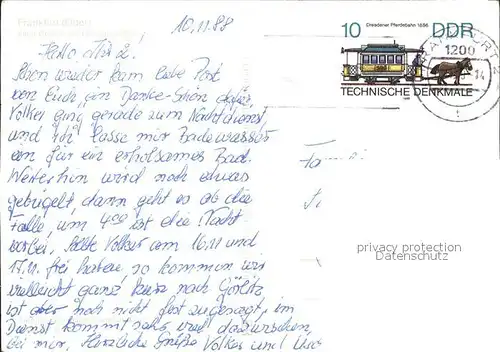 Frankfurt (Oder)
10.11.88
Hallo, Ihr 2!
Schon wieder kam liebe Post
von Euch, ein Danke-Schön dafür,
Volker ging gerade zum Nachtdienst,
und ich lasse mir Badewasser
ein für ein erholsames Bad.
Weiterhin wird noch etwas
gebügelt, dann geht es ab die
Falle, um 4⁰⁰ ist die Nacht
vorbei, sollte Volker am 16.11 und
17.11. frei haben, so kommen wir
vielleicht ganz kurz nach Görlitz
ist aber noch nicht fest zugesagt, im
Dienst kommt sehr viel dazwischen
bei mir. Herzliche Grüße Volker und
Fam
10
Dresdener Pferdebahn 1886
DDR
TECHNISCHE DENKMALE
FRANKFURT
1200
14
privacy protection
Datenschutz